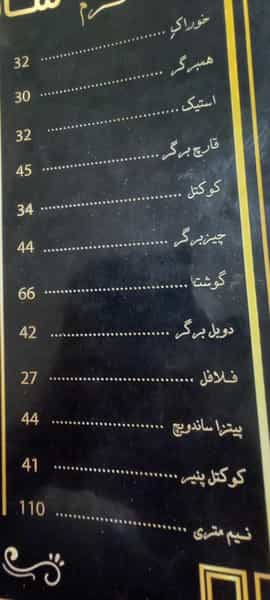 گرم
خوراک 32
همبرگر 30
استیک 32
قارچ برگر 45
کوکتل 34
چیزبرگر 44
گوشت 66
دوبل برگر 42
فلافل 27
پیتزا ساندویچ 44
کوکتل پنیر 41
نیم متری 110